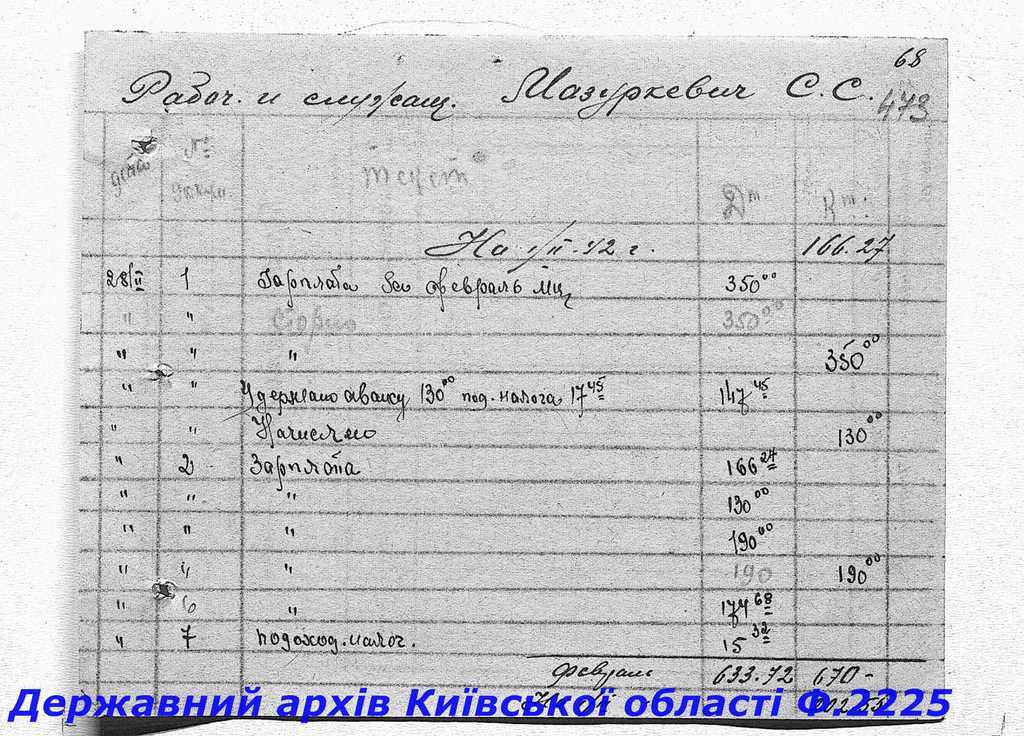 68
Рабоч. и служащ. Мазуркевич С.С. 473
дата № текст Дт Кт
На 1/II-42 г. 166.27
28/II 1 Зарплата за февраль м-ц 350 00
" " Сторно 350 00
" " " 350 00
" " Удержано авансу 130 00 под. налога 17 45 147 45
" " Начислено 130 00
" 2 Зарплата 166 27
" " " 130 00
" " " 190 00
" " " 190 190 00
" " 174 68
" 7 подоход. налог. 15 32
февраль 633.72 670 -
Державний архів Київської області Ф.2225